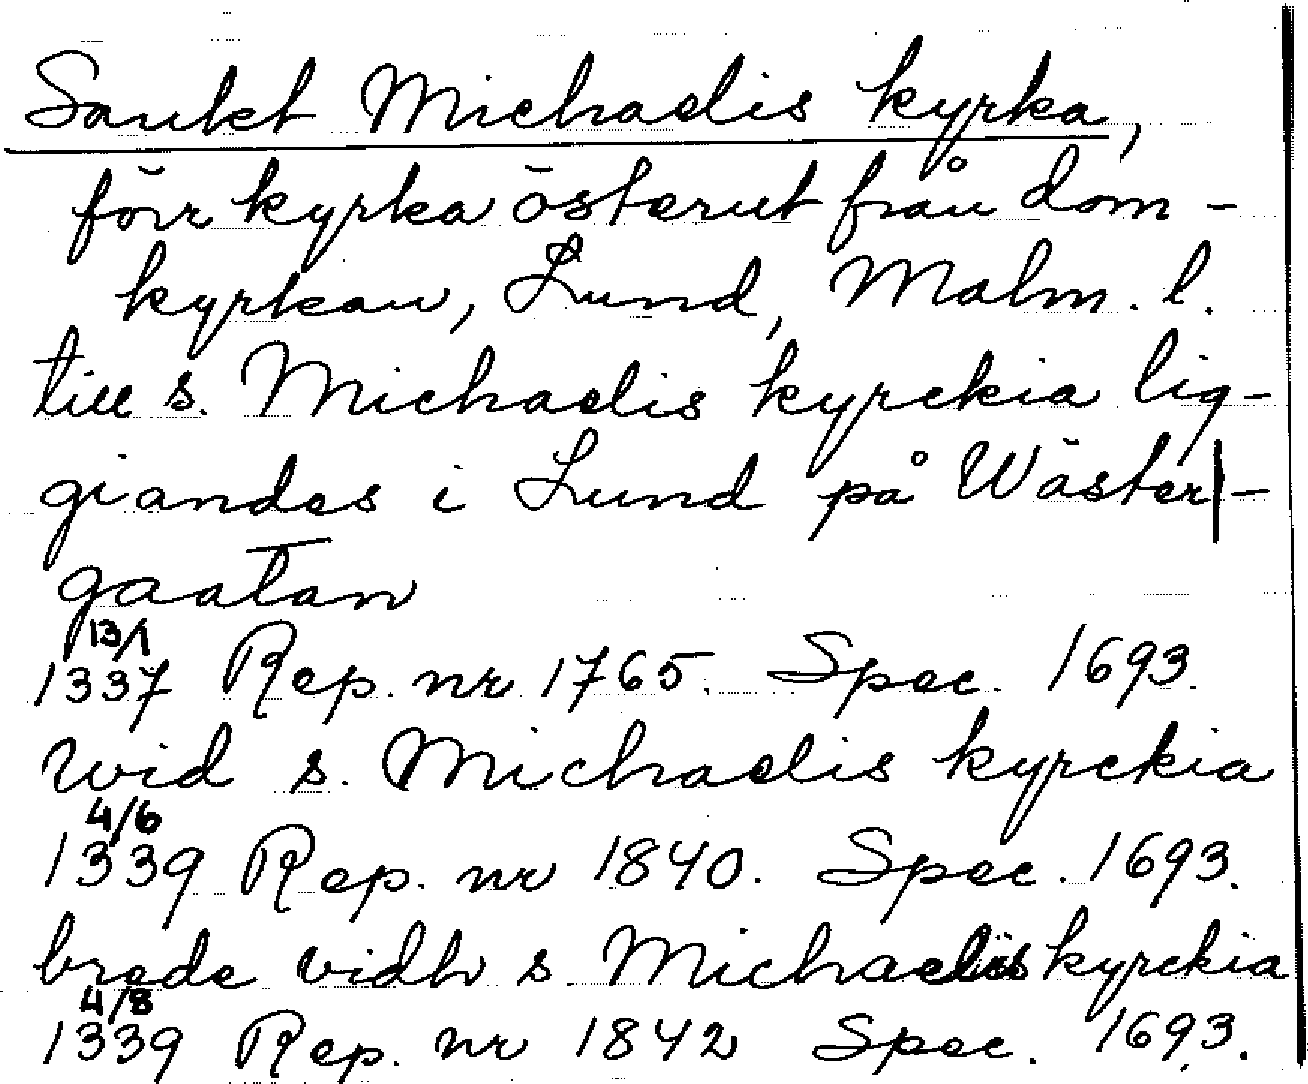 Sankt Michaelis kyrka,
förr kyrka österut från dom-
kyrkan, Lund, Malm. l.
till s. Michaelis kyrckia lig-
giandes i Lund på Wäster|-
gaatan
13/1
1337 Rep. nr 1765. Spec. 1693.
wid s. Michaelis kyrckia
4/6
1339 Rep. nr 1840. Spec. 1693.
brede vidh s Michaelis kyrckia
4/8
1339 Rep. nr 1842 Spec. 1693.